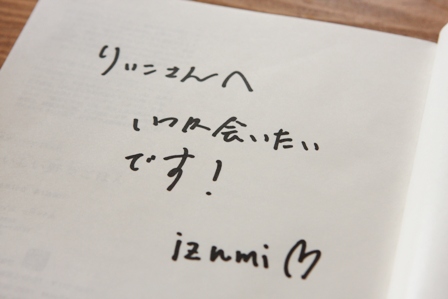 りぃこさんへ
いつか会いたい
です!
izumi